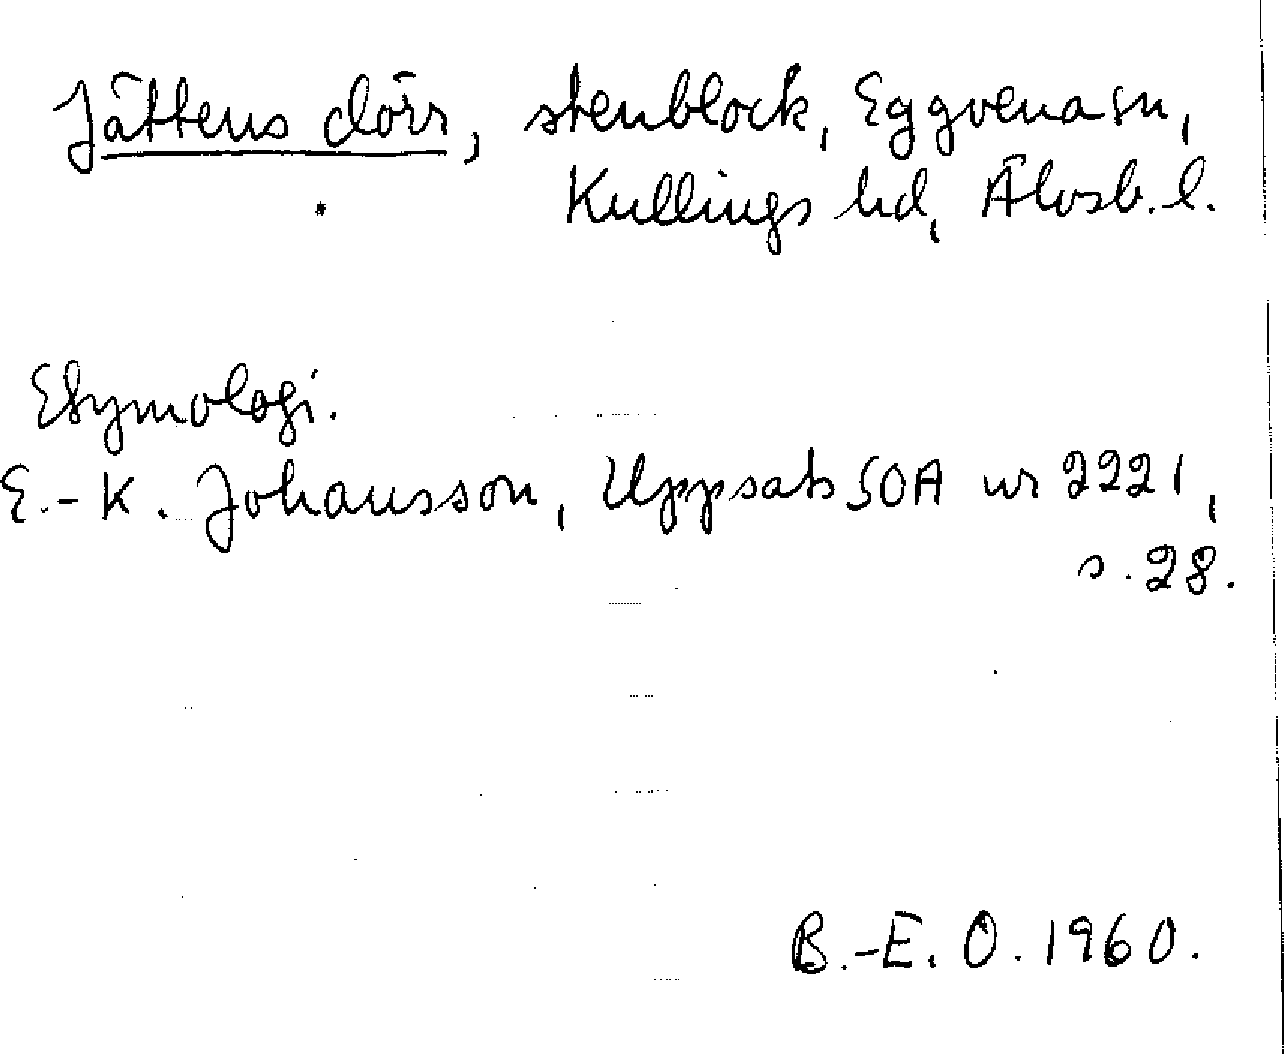 Jättens dörr, stenblock, Eggvena sn,
Kullings hd, Älvsb. l.
Etymologi.
E.-K. Johansson, Uppsats SOA nr 2221,
s. 28.
B.-E. O. 1960.